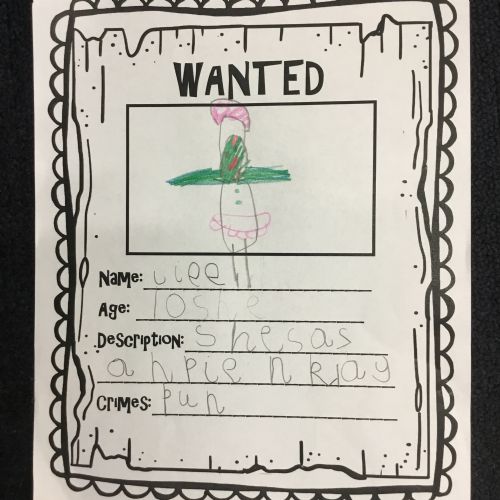 WANTED
Name: Jiee
Age: Ioshe
Description: Shesas
a hpie n RJay
Crimes: Pun